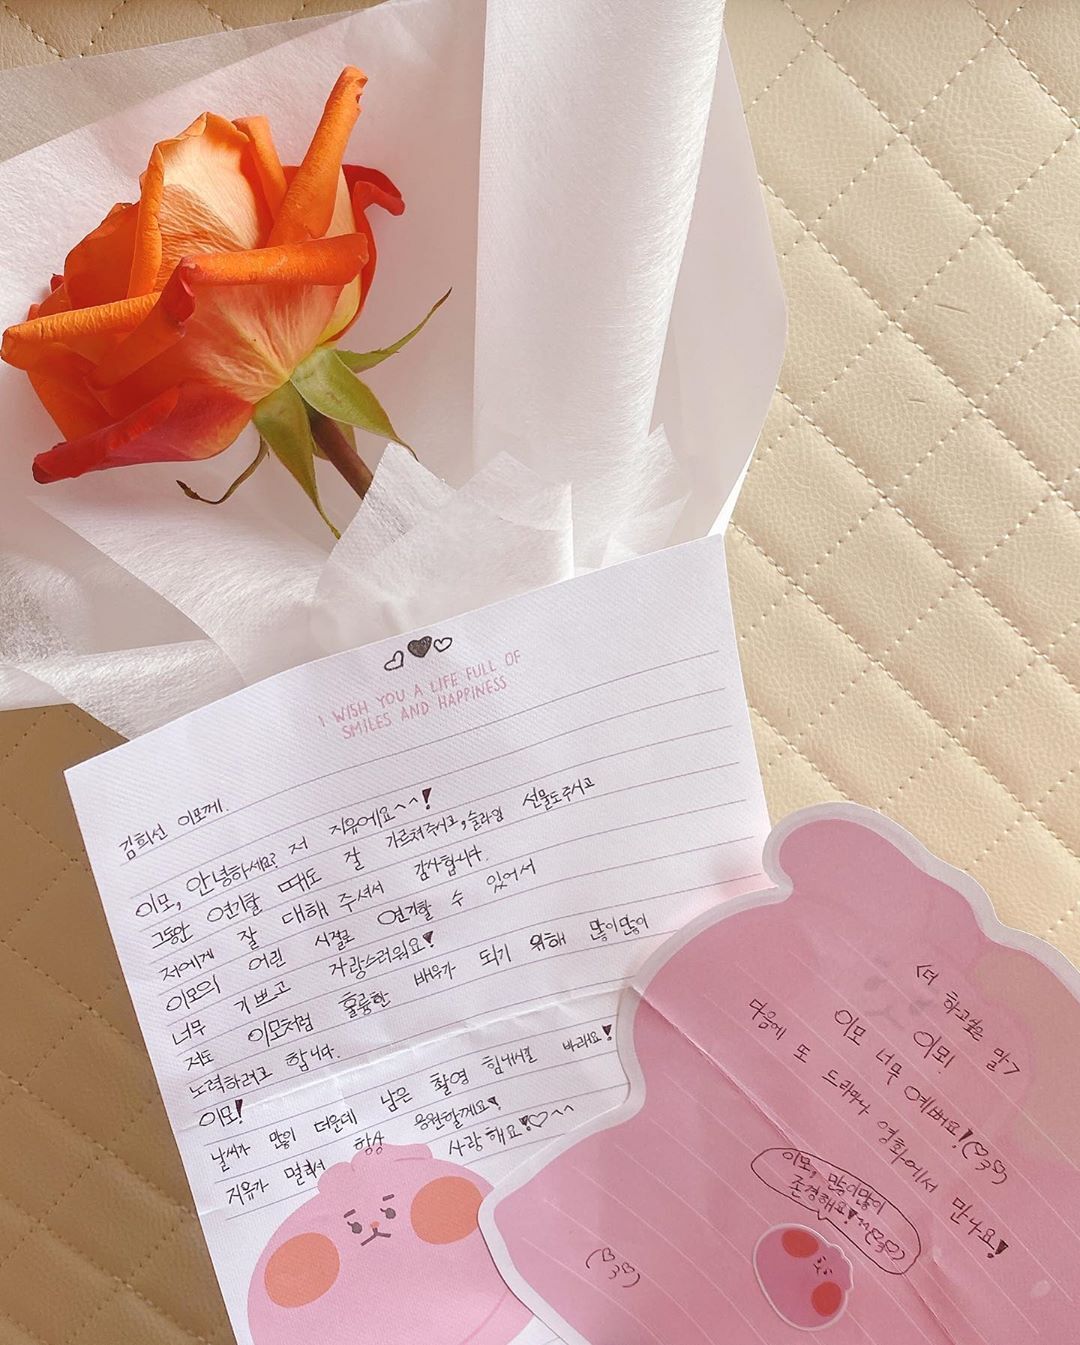 I WISH YOU A LIFE FULL OF
SMILES AND HAPPINESS
김희선 이모께.
이모, 안녕하세요? 저 지유에요^^!
그동안 연기할 때도 잘 가르쳐주시고, 슬라임 선물도주시고
저에게 잘 대해 주셔서 감사합니다.
이모의 어린 시절로 연기할 수 있어서
너무 기쁘고 자랑스러워요!
저도 이모처럼 훌륭한 배우가 되기 위해 많이많이
노력하려고 합니다.
이모!
날씨가 많이 더운데 남은 촬영 힘내시길 바래요!
지유가 멀리서 항상 응원할께요!
사랑해요!♡^^
<더 하고싶은 말>
이모!
이모 너무 예뻐요!
다음에 또 드라마나 영화에서 만나요!
이모, 많이많이
존경해요!